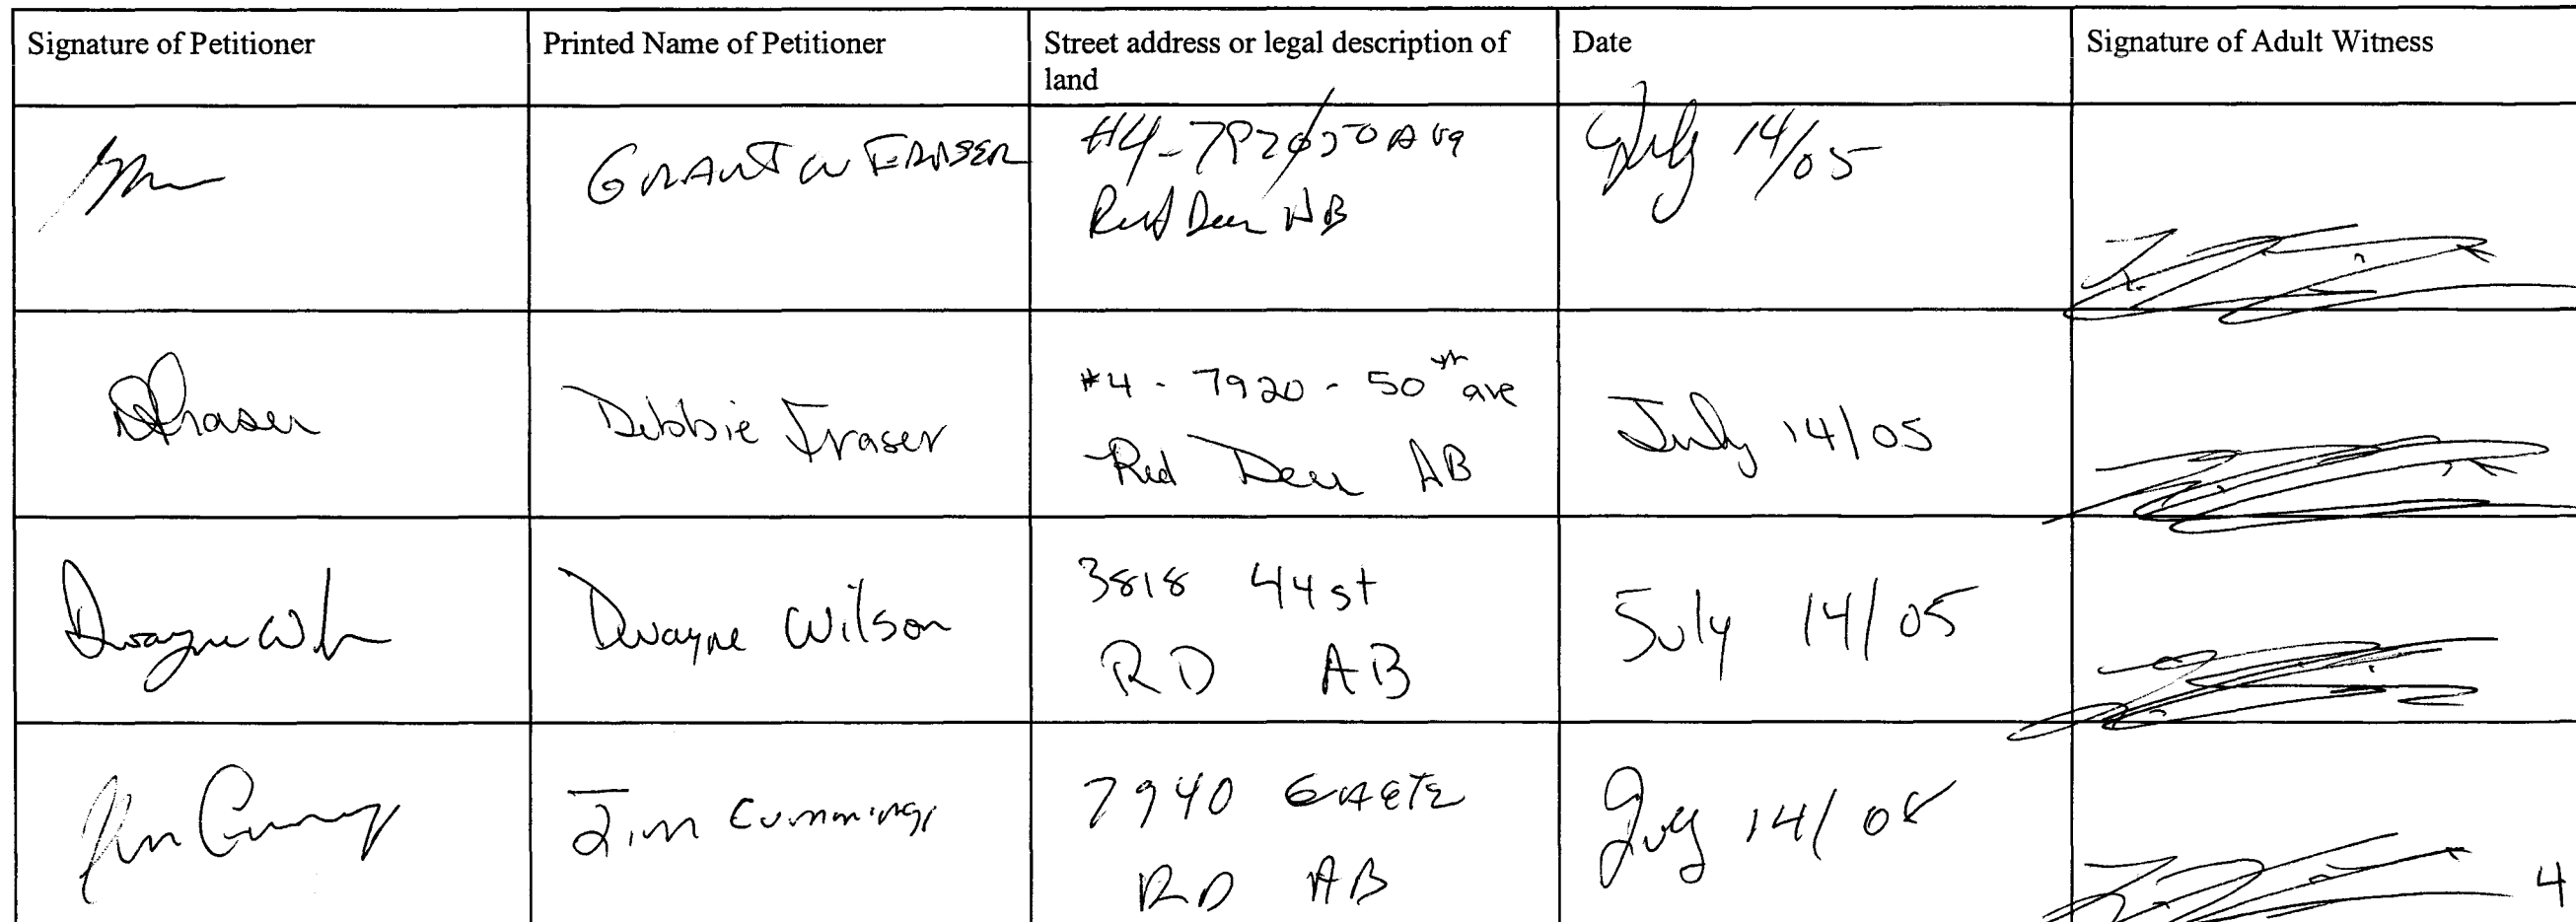 Signature of Petitioner
Printed Name of Petitioner
Street address or legal description of
land
Date
Signature of Adult Witness
GRANT W FRASER
#4-7920 50 Ave
Red Deer AB
July 14/05
DFraser
Debbie Fraser
#4 - 7920 - 50th ave
Red Deer AB
July 14/05
Dwayne Wilson
3818 44st
RD AB
July 14/05
Jim Cummings
7940 GAETZ
RD AB
July 14/05
4